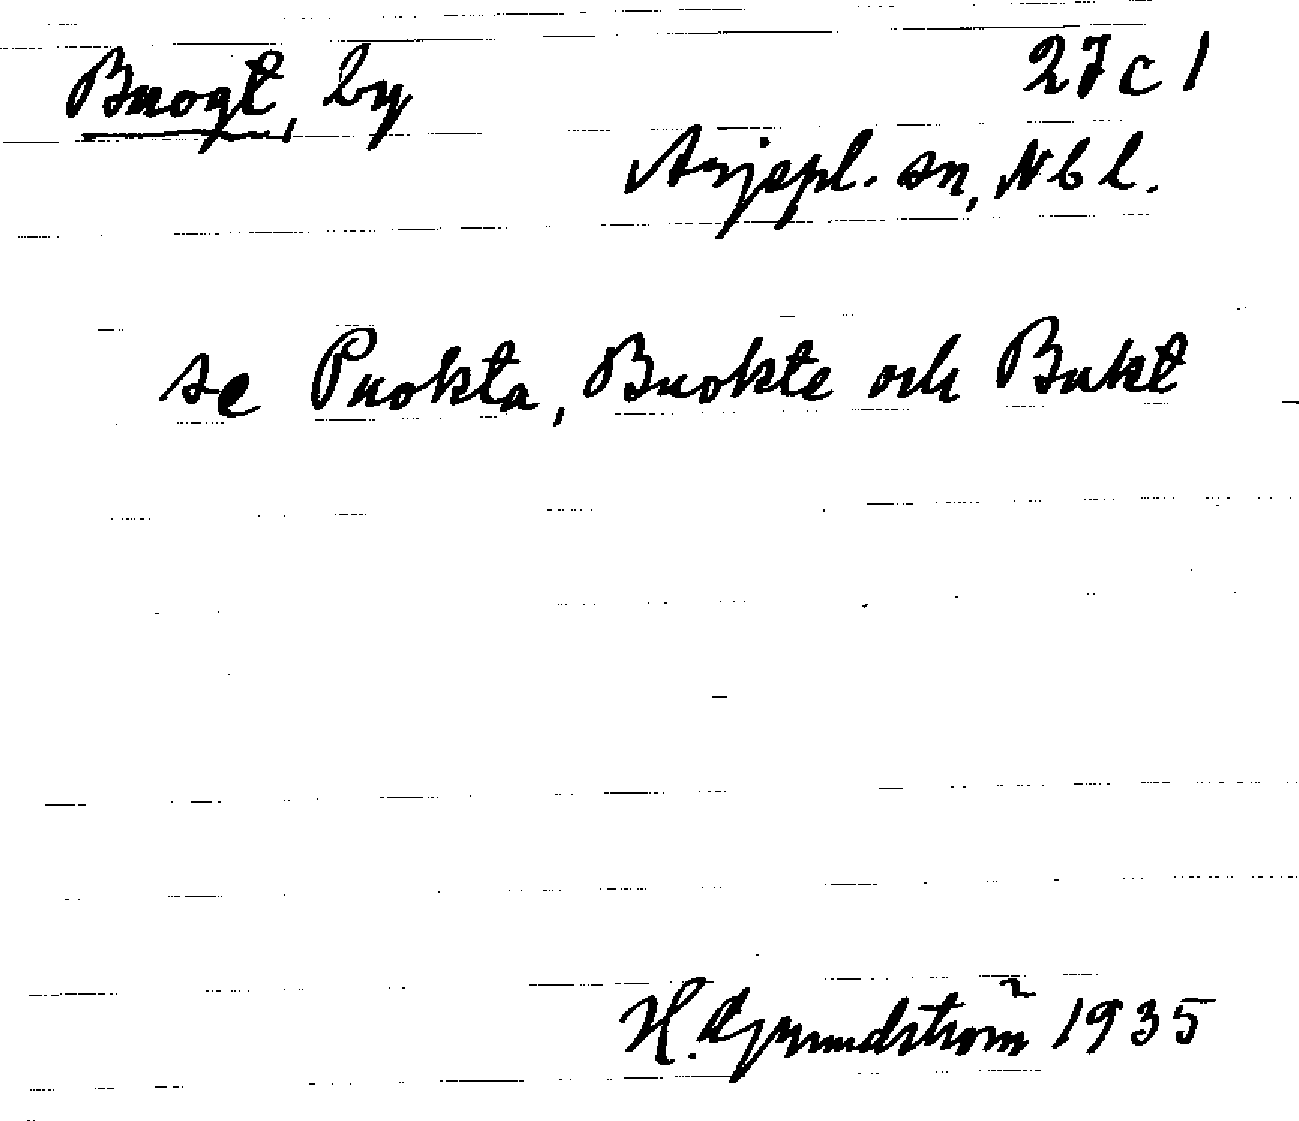 Buogt, by 27c1
Arjepl. sn, Nbl.
se Puokta, Buokte och Bukt
H. Grundström 1935